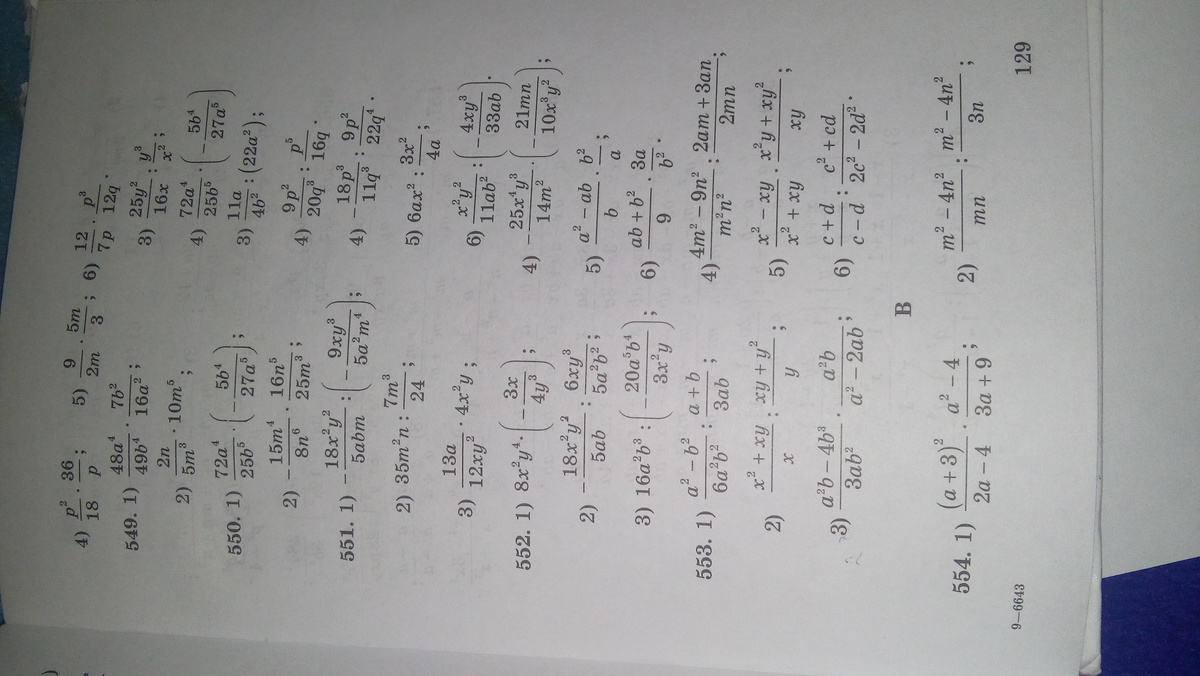 4) p²/18 · 36/p; 5) 9/2m · 5m/3; 6) 12/7p · p³/12q.
549. 1) 48a⁴/49b⁴ · 7b²/16a²; 3) 25y²/16x : y³/x²;
2) 2n/5m³ · 10m⁵; 4) 72a⁴/25b⁵ · (−5b⁴/27a⁵)
550. 1) 72a⁴/25b⁵ · (−5b⁴/27a⁵); 3) 11a/4b² : (22a²);
2) −15m⁴/8n⁶ · 16n⁵/25m³; 4) 9p²/20q³ : p⁵/16q.
551. 1) −18x²y²/5abm : (−9xy³/5a²m⁴); 4) −18p³/11q³ : 9p²/22q⁴.
2) 35m²n : 7m³/24; 5) 6ax² : 3x²/4a;
3) 13a/12xy² · 4x²y; 6) x²y²/11ab² : (−4xy³/33ab).
552. 1) 8x²y⁴ · (−3x/4y³); 4) −25x⁴y³/14m² · (−21mn/10x³y²);
2) −18x²y²/5ab : 6xy³/5a²b²; 5) (a² − ab)/b · b²/a;
3) 16a²b³ : (−20a⁵b⁴/3x²y); 6) (ab + b²)/9 · 3a/b².
553. 1) (a² − b²)/6a²b² : (a + b)/3ab; 4) (4m² − 9n²)/m²n² : (2am + 3an)/2mn;
2) (x² + xy)/x : (xy + y²)/y; 5) (x² − xy)/(x² + xy) · (x²y + xy²)/xy;
3) (a²b − 4b³)/3ab² · a²b/(a² − 2ab); 6) (c + d)/(c − d) : (c² + cd)/(2c² − 2d²).
В
554. 1) (a + 3)²/(2a − 4) · (a² − 4)/(3a + 9); 2) (m² − 4n²)/mn : (m² − 4n²)/3n;
9–6643 129